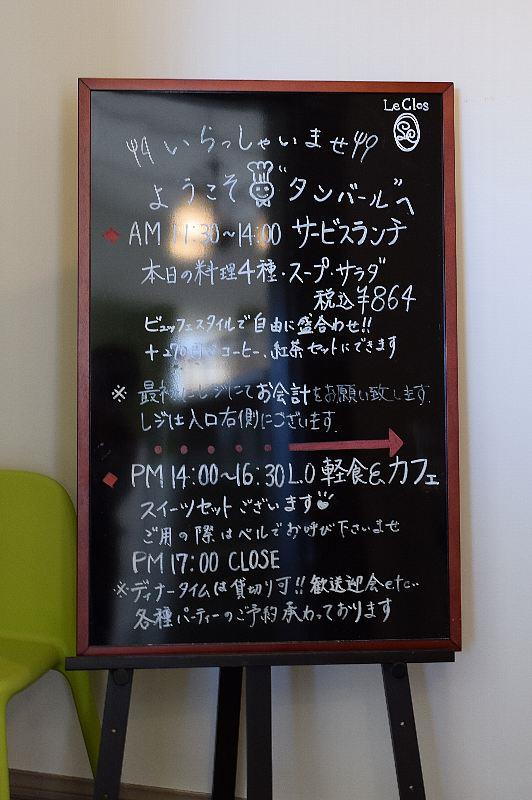 Le Clos
いらっしゃいませ
ようこそ "タンバール"へ
AM 11:30～14:00 サービスランチ
本日の料理4種・スープ・サラダ
税込¥864
ビュッフェスタイルで自由に盛合わせ!!
+270円でコーヒー、紅茶セットにできます
※ 最初にレジにてお会計をお願い致します.
レジは入口右側にございます.
PM 14:00～16:30 L.O 軽食&カフェ
スイーツセットございます
ご用の際はベルでお呼び下さいませ
PM 17:00 CLOSE
※ディナータイムは貸切り可!! 歓送迎会etc‥
各種パーティーのご予約承わっております